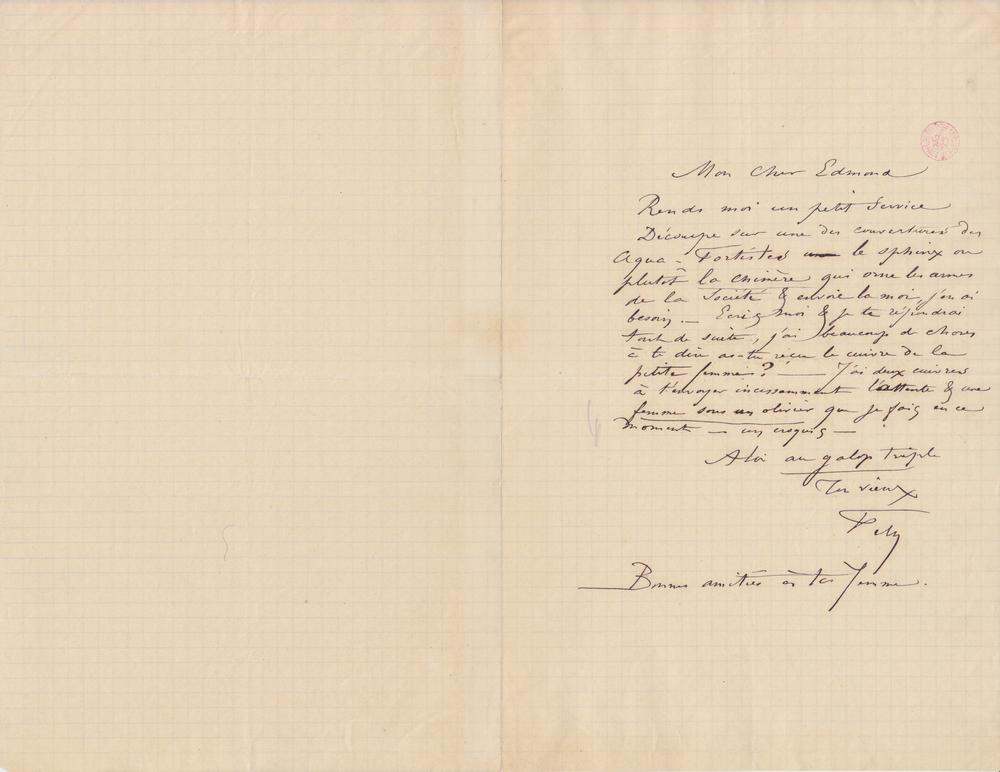 Mon Cher Edmond
Rends moi un petit service
Découpe sur une des couvertures des
Aqua-Fortistes le sphinx ou
plutôt la chimère qui orne les armes
de la Société & envoie la moi, j'en ai
besoin. — Ecris moi & je te répondrai
tout de suite, j'ai beaucoup de choses
à te dire as-tu reçu le cuivre de la
petite femme? — J'ai deux cuivres
à t'envoyer incessamment l'attente & une
femme sous un olivier que je fais en ce
moment — un croquis —
A toi au galop triple
Ton vieux
Fély
Bonnes amitiés à ta femme.